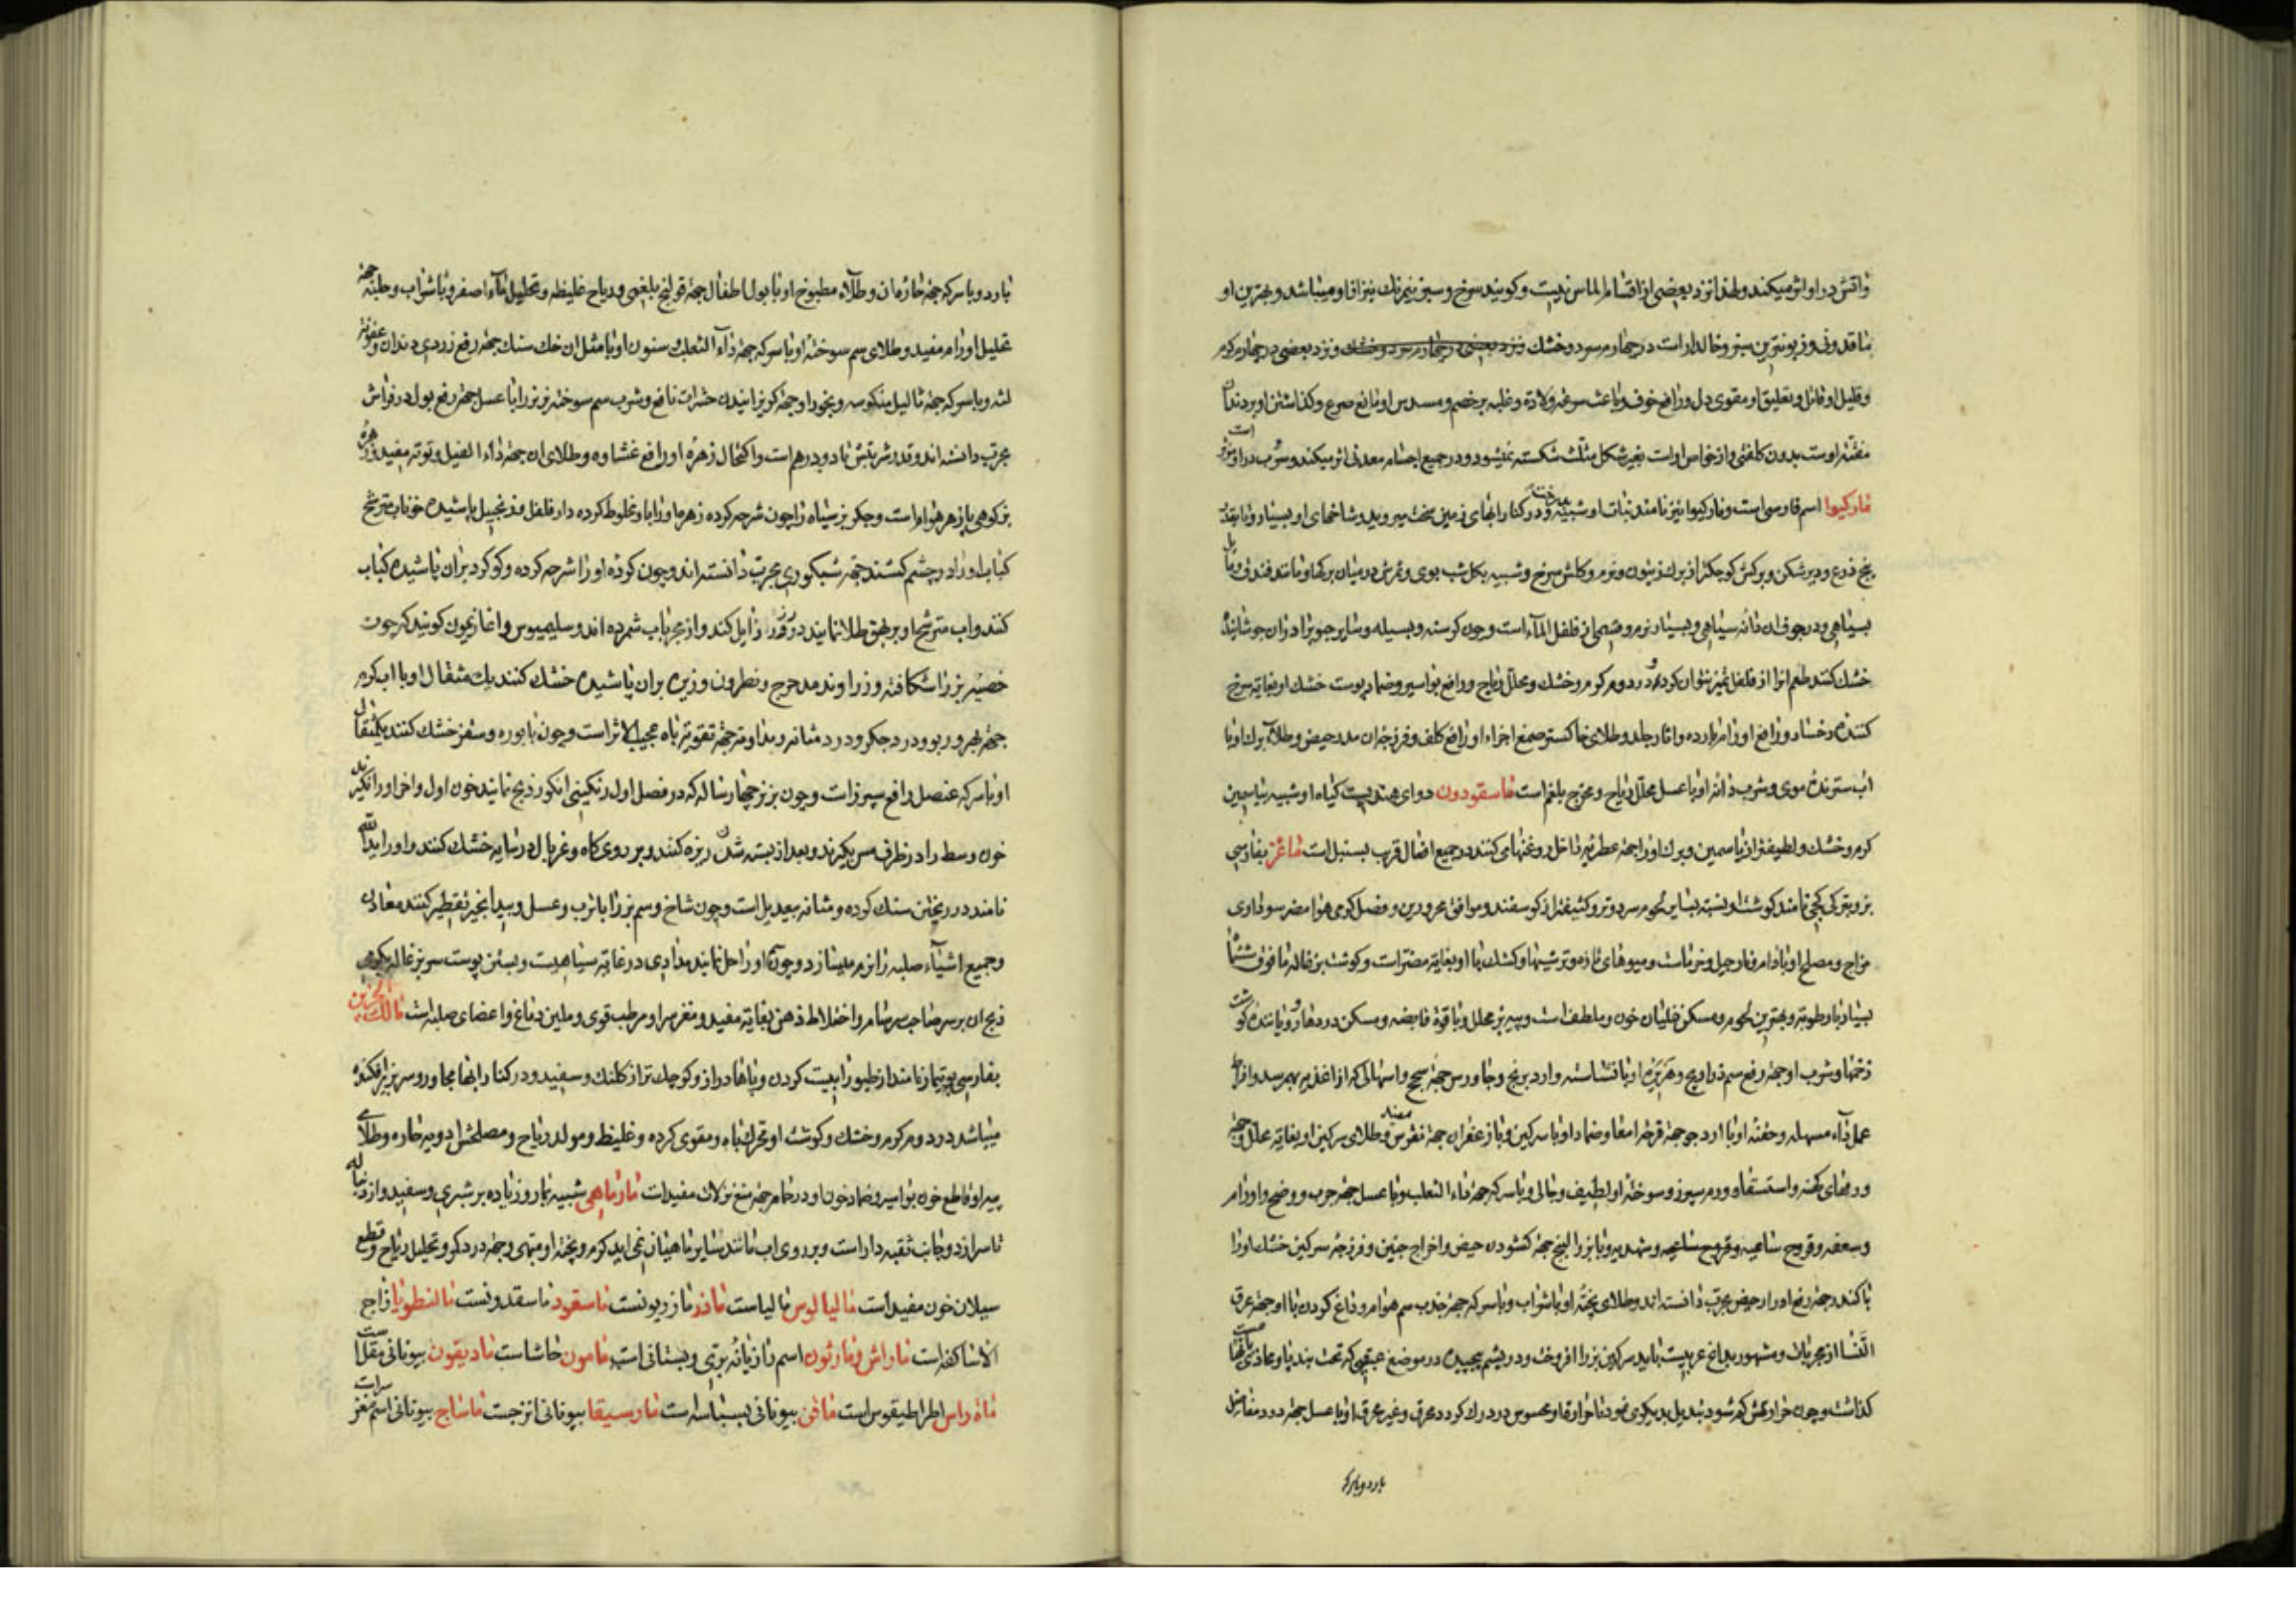 و آتش در او اثر میکند و لهذا نزد بعضی از اقسام الماس نیست و کویند سرخ و سبز نیمرنک نیز از او میباشد و بهترین او
و زبونترین سبز و خالدار است در چهارم سرد و خشک و نزد بعضی در چهارم کرم
و قلیل او قاتل و تعلیق او مقوی دل و رافع خوف و باعث سرعة ولادة و غلبه بر خصم و مسدس او نافع صرع و کذاشتن او بر دندان
مفتته اوست بدون کلفتی و از خواص اوست بغیر شکل مثلث شکسته نمیشود و در جمیع اجسام معدنی اثر میکند و سرب در او مؤثر است
مارکیوا اسم فارسی است و مارکیوا نیز نامند نبات او شبیه و در کنار ابهای زمین سخت میروید و شاخهای او بسیار و تا بقدر
پنج ذرع و دیر شکن و برکش کوچکتر از برک زیتون و نرم و کلش سرخ و شبیه بکل شب بوی و ثمرش در میان برکها و مانند فندقی و مایل
بسیاهی و در جوف ان دانه سیاهی و بسیار نرم و قسمی از فلفل المآء است و چون کرسنه و بسیله و سایر حبوب را در ان جوشانیده
خشک کنند طعم انرا از فلفل تمیز نتوان کرد و در دوم کرم و خشک و محلل ریاح و رافع بواسیر و ضماد پوست خشک او بغایة سرخ
کننده رخسار و رافع اورام بارده و اثار جلد و طلای خاکستر جمیع اجزاء او رافع کلف و فرزجه ان مدر حیض و طلآء برک او با
اب سترنده موی و شرب دانه او با عسل محلل ریاح و مخرج بلغم است ماسقودون دوای هندیست کیاه او شبیه بیاسمین
کرم و خشک و لطیفتر از یاسمین و برک او را جهة عطریة داخل روغنها می کنند در جمیع افعال قریب بسنبل است ماعز بفارسی
بز و بترکی کچی نامند کوشت او نسبت بسایر لحوم سرد و تر و کثیفتر از کوسفند و موافق محرورین و فصل کرمی هوا مضر سوداوی
مزاج و مصلح او بادام و نارجیل و خرماست و میوهای تازه و ترشیها و کشک با او بغایة مضر است و کوشت بزغاله تا فوق ششماه
بسیار با رطوبة و بهترین لحوم و مسکن غلیان خون و ملطف است و پیه بز محلل و با قوة قابضه و مسکن دردها و رویاننده کوشت
زخمها و شرب او جهة رفع سم ذراریح و هریره او با نشاسته و ارد برنج و جاورس جهة سحج و اسهالی که از اغذیه بهم رسد و افراط
عمل دوآء مسهله و حقنه او با ارد جو جهة قرحه امعا و ضماد او با سرکین و با زعفران جهة نقرس مفید و طلای سرکین او بغایة محلل و جهة
ورمهای کهنه و استسقا و ورم سپرز و سوخته او لطیف و جالی و با سرکه جهة داء الثعلب و با عسل جهة جرب و وضح و اورام
و سعفه و قروح ساعیه و شهدیه و با بزر البنج جهة کشودن حیض و اخراج جنین و فرزجه سرکین خشک او را
با کندر جهة رفع ادرار حیض مجرب دانسته اند و طلای پخته او با شراب و با سرکه جهة جذب سم هوام و داغ کردن با او جهة عرق
النسا از مجربات و مشهور بداغ عربیست باید سرکین بز را افروخت و در پشم پیچیده در موضع عمیقی که تحت بند پا و محاذی ابهام است
کذاشت و چون حرارتش کم شود تبدیل بدیکری نمود تا حرارة او محسوس در درک کردد محرق و غیر محرق او با عسل جهة درد مفاصل
بارد و باسرکه
بارد و با سرکه جهة خازمان و طلآء مطبوخ او با بول اطفال جهة قولنج بلغمی و ریاح غلیظه و تحلیل مآء اصفر و با شراب و حلبه جهة
تحلیل اورام مفید و طلای سم سوخته او با سرکه جهة دآء الثعلب و سنون او با مثل ان نمک سنک جهة رفع زردی دندان و عفونة
لثه و با سرکه جهة ثالیل منکوسه و بخور او جهة کریزانیدن حشرات نافع و شرب سم سوخته بز نر را با عسل جهة رفع بول در فراش
مجرب دانسته اند و قدر شربتش تا دو درهم است و اکتحال زهره او رافع غشاوه و طلای ان جهة داء الفیل و توته مفید و زهره
بز کوهی پادزهر هوام است و جکر بز سیاه را چون شرحه کرده زهره او را با او مخلوط کرده دارفلفل و زنجبیل پاشیده خوناب مترشح
کباب او را در چشم کشند جهة شبکوری مجرب دانسته اند و چون کرده او را شرحه کرده و کوکرد بران پاشیده کباب
کنند و اب مترشح او بر بهق طلا نمایند در فور زایل کند و از مجربات شمرده اند و سلیمیوس و اغاذیمون کویند که چون
خصیه بز را شکافته و زراوند مدحرج و نطرون و زیره بران پاشیده خشک کنند یک مثقال او با اب کرم
جهة بهر و ربو و درد جکر و درد مثانه و مداومة جهة تقویة باه عجیب الاثر است و چون با بوره و سعتر خشک کنند یکمثقال
او با سرکه عنصل رافع سپرز است و چون بز نر چهار ساله که در فصل اول رنکینی انکور ذبح نمایند خون اول و اخر او را نکیرند
خون وسط را در ظرف مس بکیرند و بعد از بسته شدن ریزه کنند و بر روی کاه و غربال در سایه خشک کنند و او را یدالله
نامند در ریختن سنک کرده و مثانه بعدیل است و چون شاخ و سم بز را با ترب و عسل و بیدانجیر تقطیر کنند معادن
و جمیع اشیآء صلبه را نرم میسازد و چون سم او را حل نمایند مدادی در غایة سیاهیست و بستن پوست سر بزغاله
ذبح ان بر سر صاحب سرسام و اختلاط ذهن بغایة مفید و مغز سر او مرطب قوی و ملین دماغ و اعضای صلبه است مالک الحزین
بفارسی بوتیمار نامند از طیور ابیست کردن و پاها دراز و کوچک تر از کلنک و سفید و در کنار ابها مجاور و سر بزیر افکنده
میباشد در دوم کرم و خشک و کوشت او محرک باه و مقوی کرده و غلیظ و مولد ریاح و مصلحش ادویه حاره و طلای
پیه او قاطع خون بواسیر و ضماد خون او در حمام جهة منع نزلات مفید است مارماهی شبیه بمار و زیاده بر شبری و سفید و از دنباله
تا سر از دو جانب ثقبه دار است و بر روی اب مانند سایر ماهیان نمی اید کرم و پخته او مبهی و جهة درد کمر و تحلیل ریاح و قطع
سیلان خون مفید است مالیالوس مالیاست ماذر مازریونست ماسقود ماسقدونست مالنطوبا زاج
الاساکفه است ماراش و مارثون اسم رازیانه بری و بستانی است مامون حاشاست مادیقون بیونانی مقل است
ماه راس اطراطیقوس است ماقن بیونانی بسباسه است مارسیقا بیونانی اترجست ماساج بیونانی اسم مغز سر است